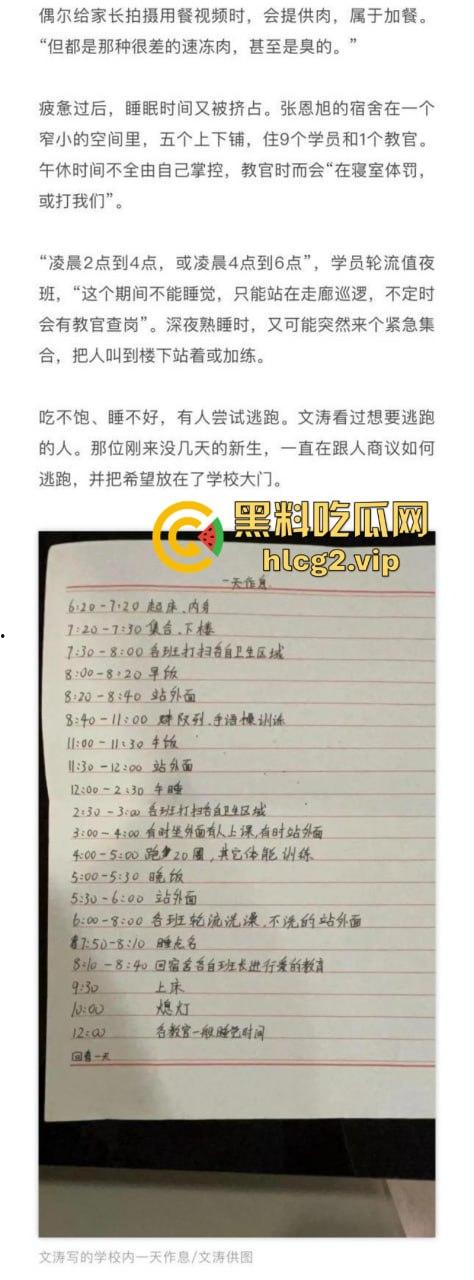 偶尔给家长拍摄用餐视频时，会提供肉，属于加餐。
“但都是那种很差的速冻肉，甚至是臭的。”
疲惫过后，睡眠时间又被挤占。张恩旭的宿舍在一个
窄小的空间里，五个上下铺，住9个学员和1个教官。
午休时间不全由自己掌控，教官时而会“在寝室体罚，
或打我们”。
“凌晨2点到4点，或凌晨4点到6点”，学员轮流值夜
班，“这个期间不能睡觉，只能站在走廊巡逻，不定时
会有教官查岗”。深夜熟睡时，又可能突然来个紧急集
合，把人叫到楼下站着或加练。
吃不饱、睡不好，有人尝试逃跑。文涛看过想要逃跑
的人。那位刚来没几天的新生，一直在跟人商议如何
逃跑，并把希望放在了学校大门。
黑料吃瓜网
hlcg2.vip
一天作息
6:20-7:20 起床、内务
7:20-7:30 集合、下楼
7:30-8:00 各班打扫各自卫生区域
8:00-8:20 早饭
8:20-8:40 站外面
8:40-11:00 练队列、手语操训练
11:00-11:30 午饭
11:30-12:00 站外面
12:00-2:30 午睡
2:30-3:00 各班打扫各自卫生区域
3:00-4:00 有时坐外面有人上课,有时站外面
4:00-5:00 跑20圈,其它体能训练
5:00-5:30 晚饭
5:30-6:00 站外面
6:00-8:00 各班轮流洗澡,不洗的站外面
7:50-8:10 睡点名
8:10-8:40 回宿舍各自班长进行爱的教育
9:30 上床
10:00 熄灯
12:00 各教官一般睡觉时间
一天
文涛写的学校内一天作息/文涛供图